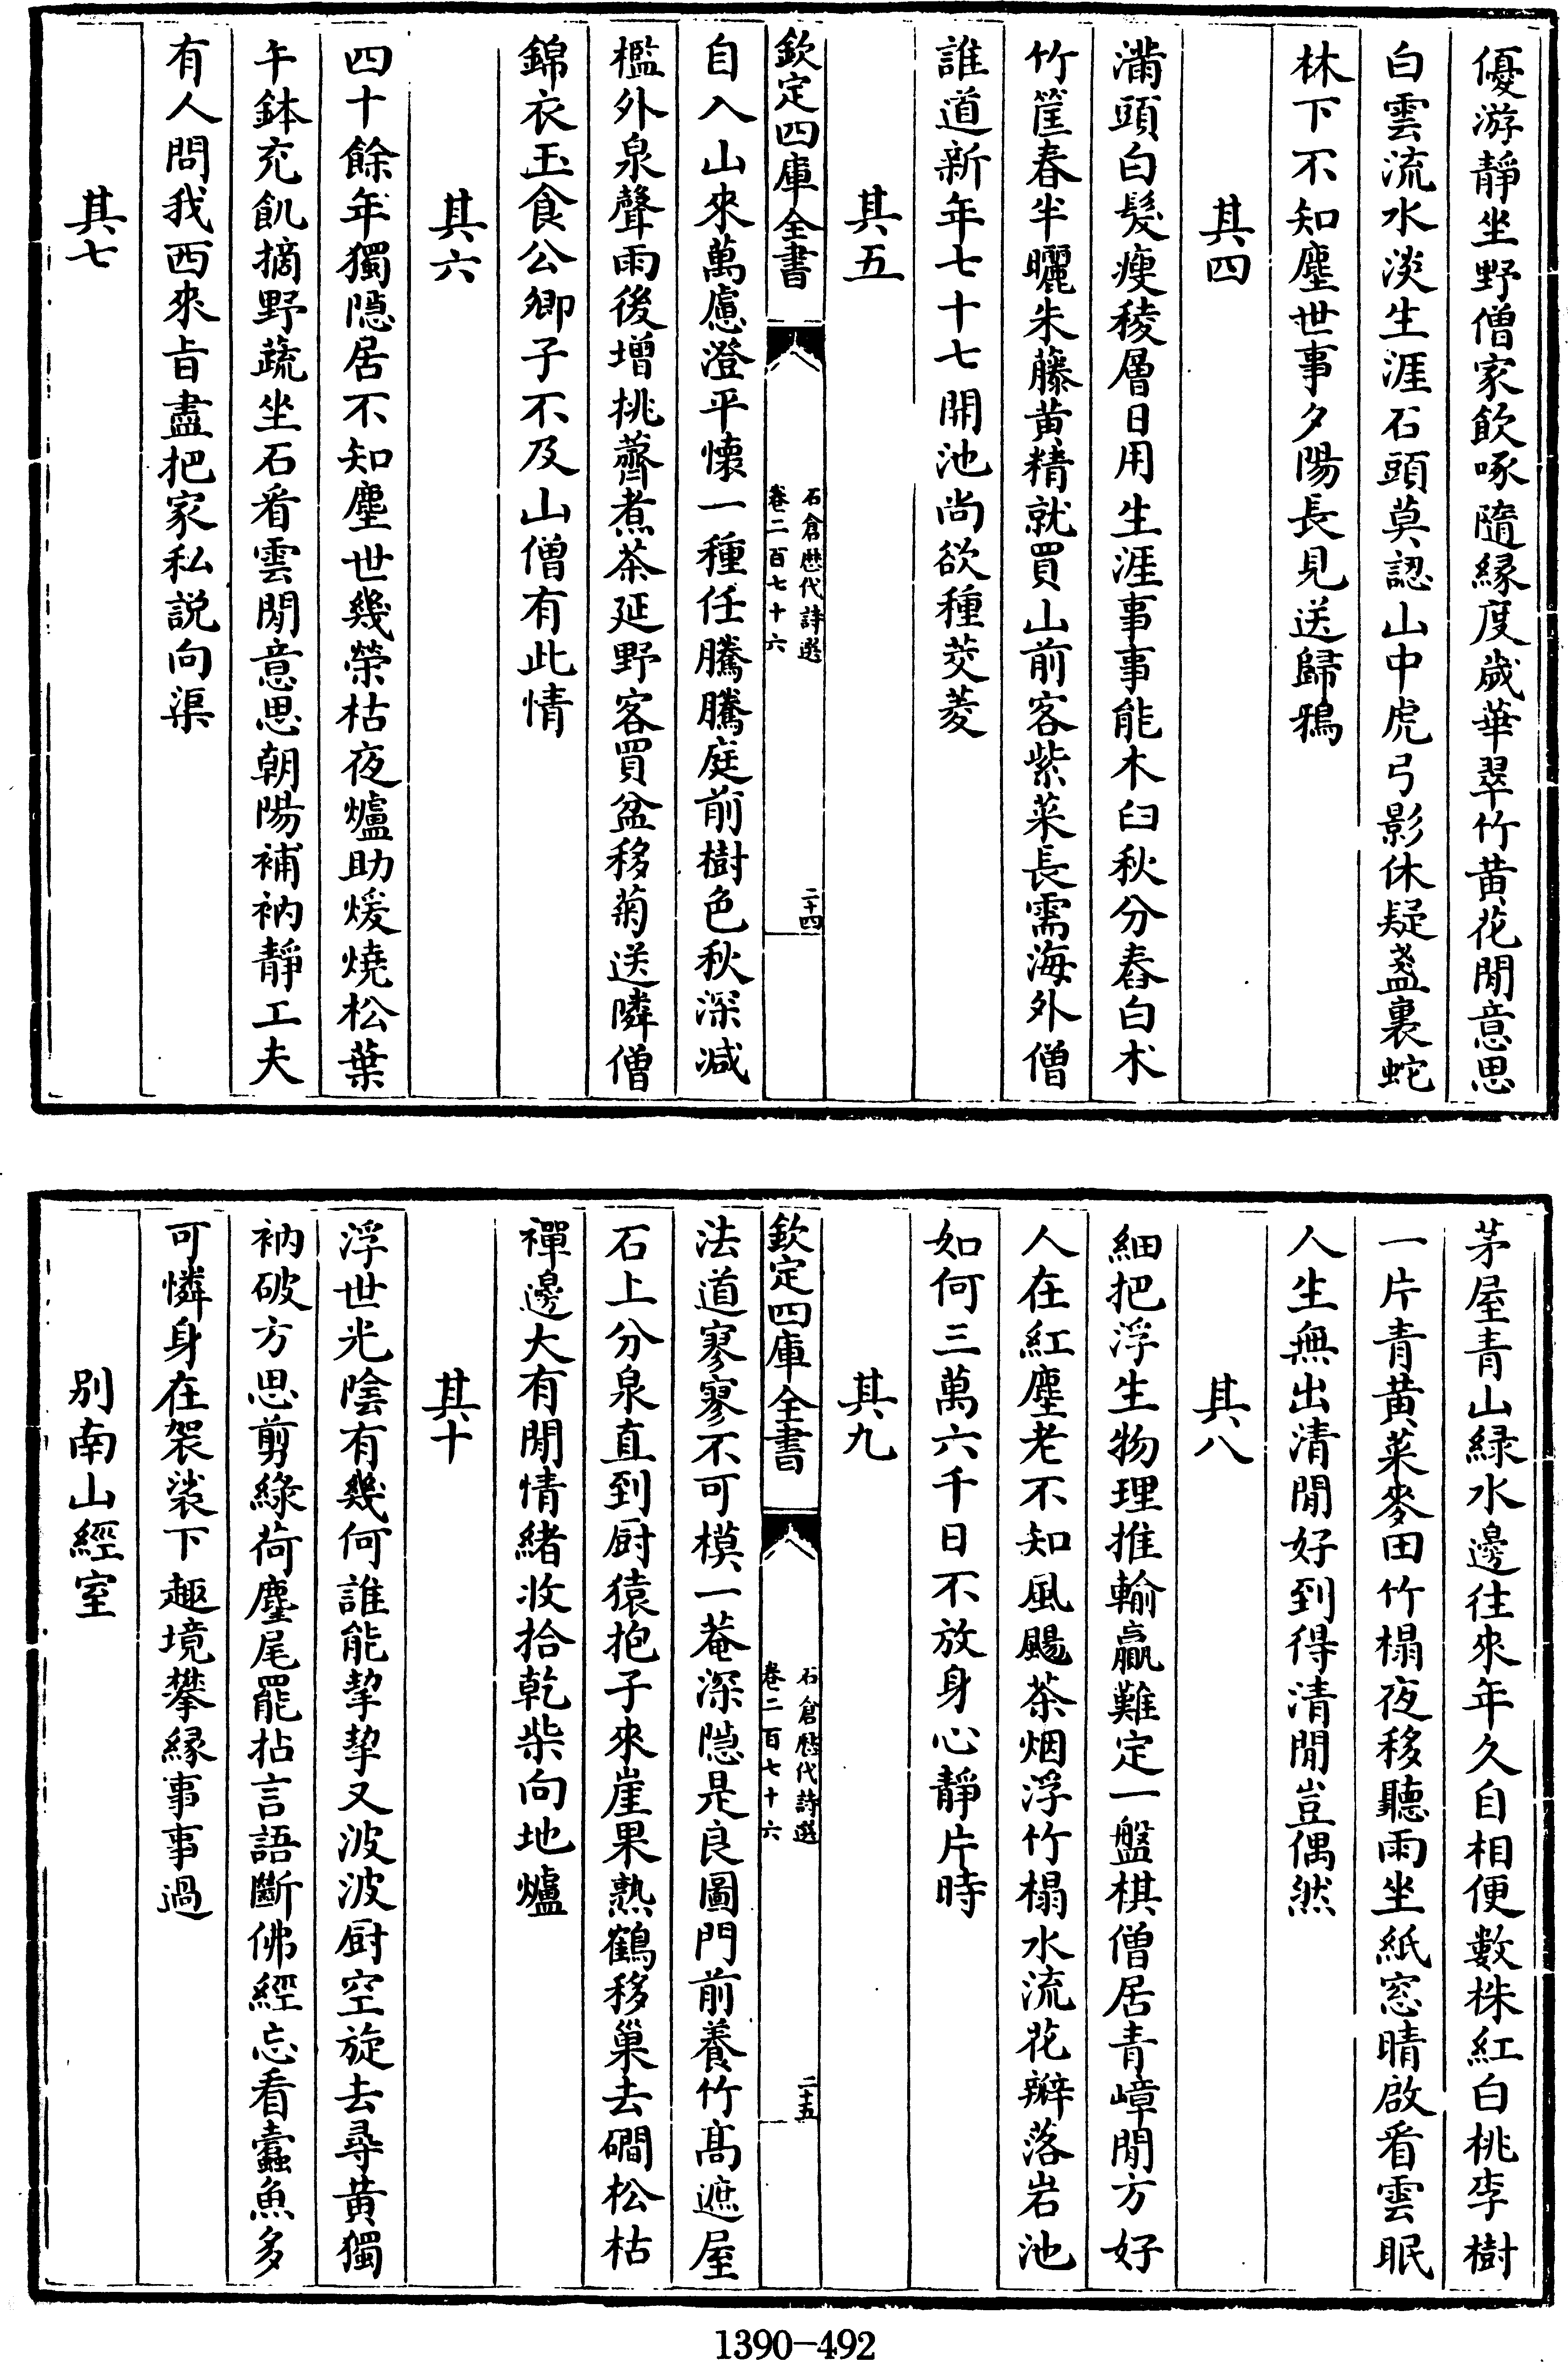 優游靜坐野僧家飲啄隨縁度歲華翠竹黄花閒意思
白雲流水淡生涯石頭莫認山中虎弓影休疑盞裏蛇
林下不知塵世事夕陽長見送歸鴉
其四
滿頭白髮瘦稜層日用生涯事事能木臼秋分舂白朮
竹筐春半曬朱藤黄精就買山前客紫菜長需海外僧
誰道新年七十七開池尚欲種茭菱
其五
欽定四庫全書
石倉歴代詩選
卷二百七十六
二十四
自入山來萬慮澄平懐一種任騰騰庭前樹色秋深減
檻外泉聲雨後增挑薺煮茶延野客買盆移菊送隣僧
錦衣玉食公卿子不及山僧有此情
其六
四十餘年獨隠居不知塵世幾榮枯夜爐助煖燒松葉
午鉢充飢摘野蔬坐石看雲閒意思朝陽補衲靜工夫
有人問我西來旨盡把家私説向渠
其七
茅屋青山緑水邊往來年久自相便數株紅白桃李樹
一片青黄菜麥田竹榻夜移聽雨坐紙窓晴啟看雲眠
人生無出清閒好到得清閒豈偶然
其八
細把浮生物理推輸贏難定一盤棋僧居青嶂閒方好
人在紅塵老不知風颺茶烟浮竹榻水流花瓣落岩池
如何三萬六千日不放身心靜片時
其九
欽定四庫全書
石倉歴代詩選
卷二百七十六
二十五
法道寥寥不可模一菴深隠是良圖門前養竹髙遮屋
石上分泉直到厨猿抱子來崖果熟鶴移巢去磵松枯
禪邊大有閒情緒收拾乾柴向地爐
其十
浮世光陰有幾何誰能挈挈又波波厨空旋去尋黄獨
衲破方思剪綠荷塵尾罷拈言語斷佛經忘看蠹魚多
可憐身在袈裟下趣境攀縁事事過
别南山經室
1390-492